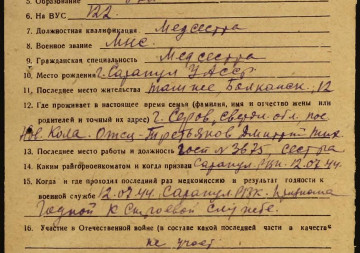 5. Образование
6. На ВУС 122
7. Должностная квалификация Медсестра
8. Военное звание МНС
9. Гражданская специальность Медсестра
10. Место рождения г. Сарапул УАССР
11. Последнее место жительства 12
12. Где проживает в настоящее время семья (фамилия, имя и отчество жены или
родителей и точный их адрес) г. Серов, Свердл обл. пос
Нов. Кола. Отец - Третьяков Дмитрий Мих
13. Последнее место работы и должность госп № 3675 сестра
14. Каким райгорвоенкоматом и когда призван Сарапул 12.07.44
15. Когда и где проходил последний раз медкомиссию и результат годности к
военной службе 12.07.44. Сарапул РВК. Признана
Годной к строевой службе.
16. Участие в Отечественной войне (в составе какой последней части в качестве
не участ.